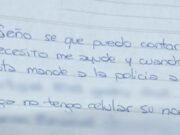 Seño se que puedo contar
ecesito me ayude y cuando
ta mande a la policia a
no tengo celular su no